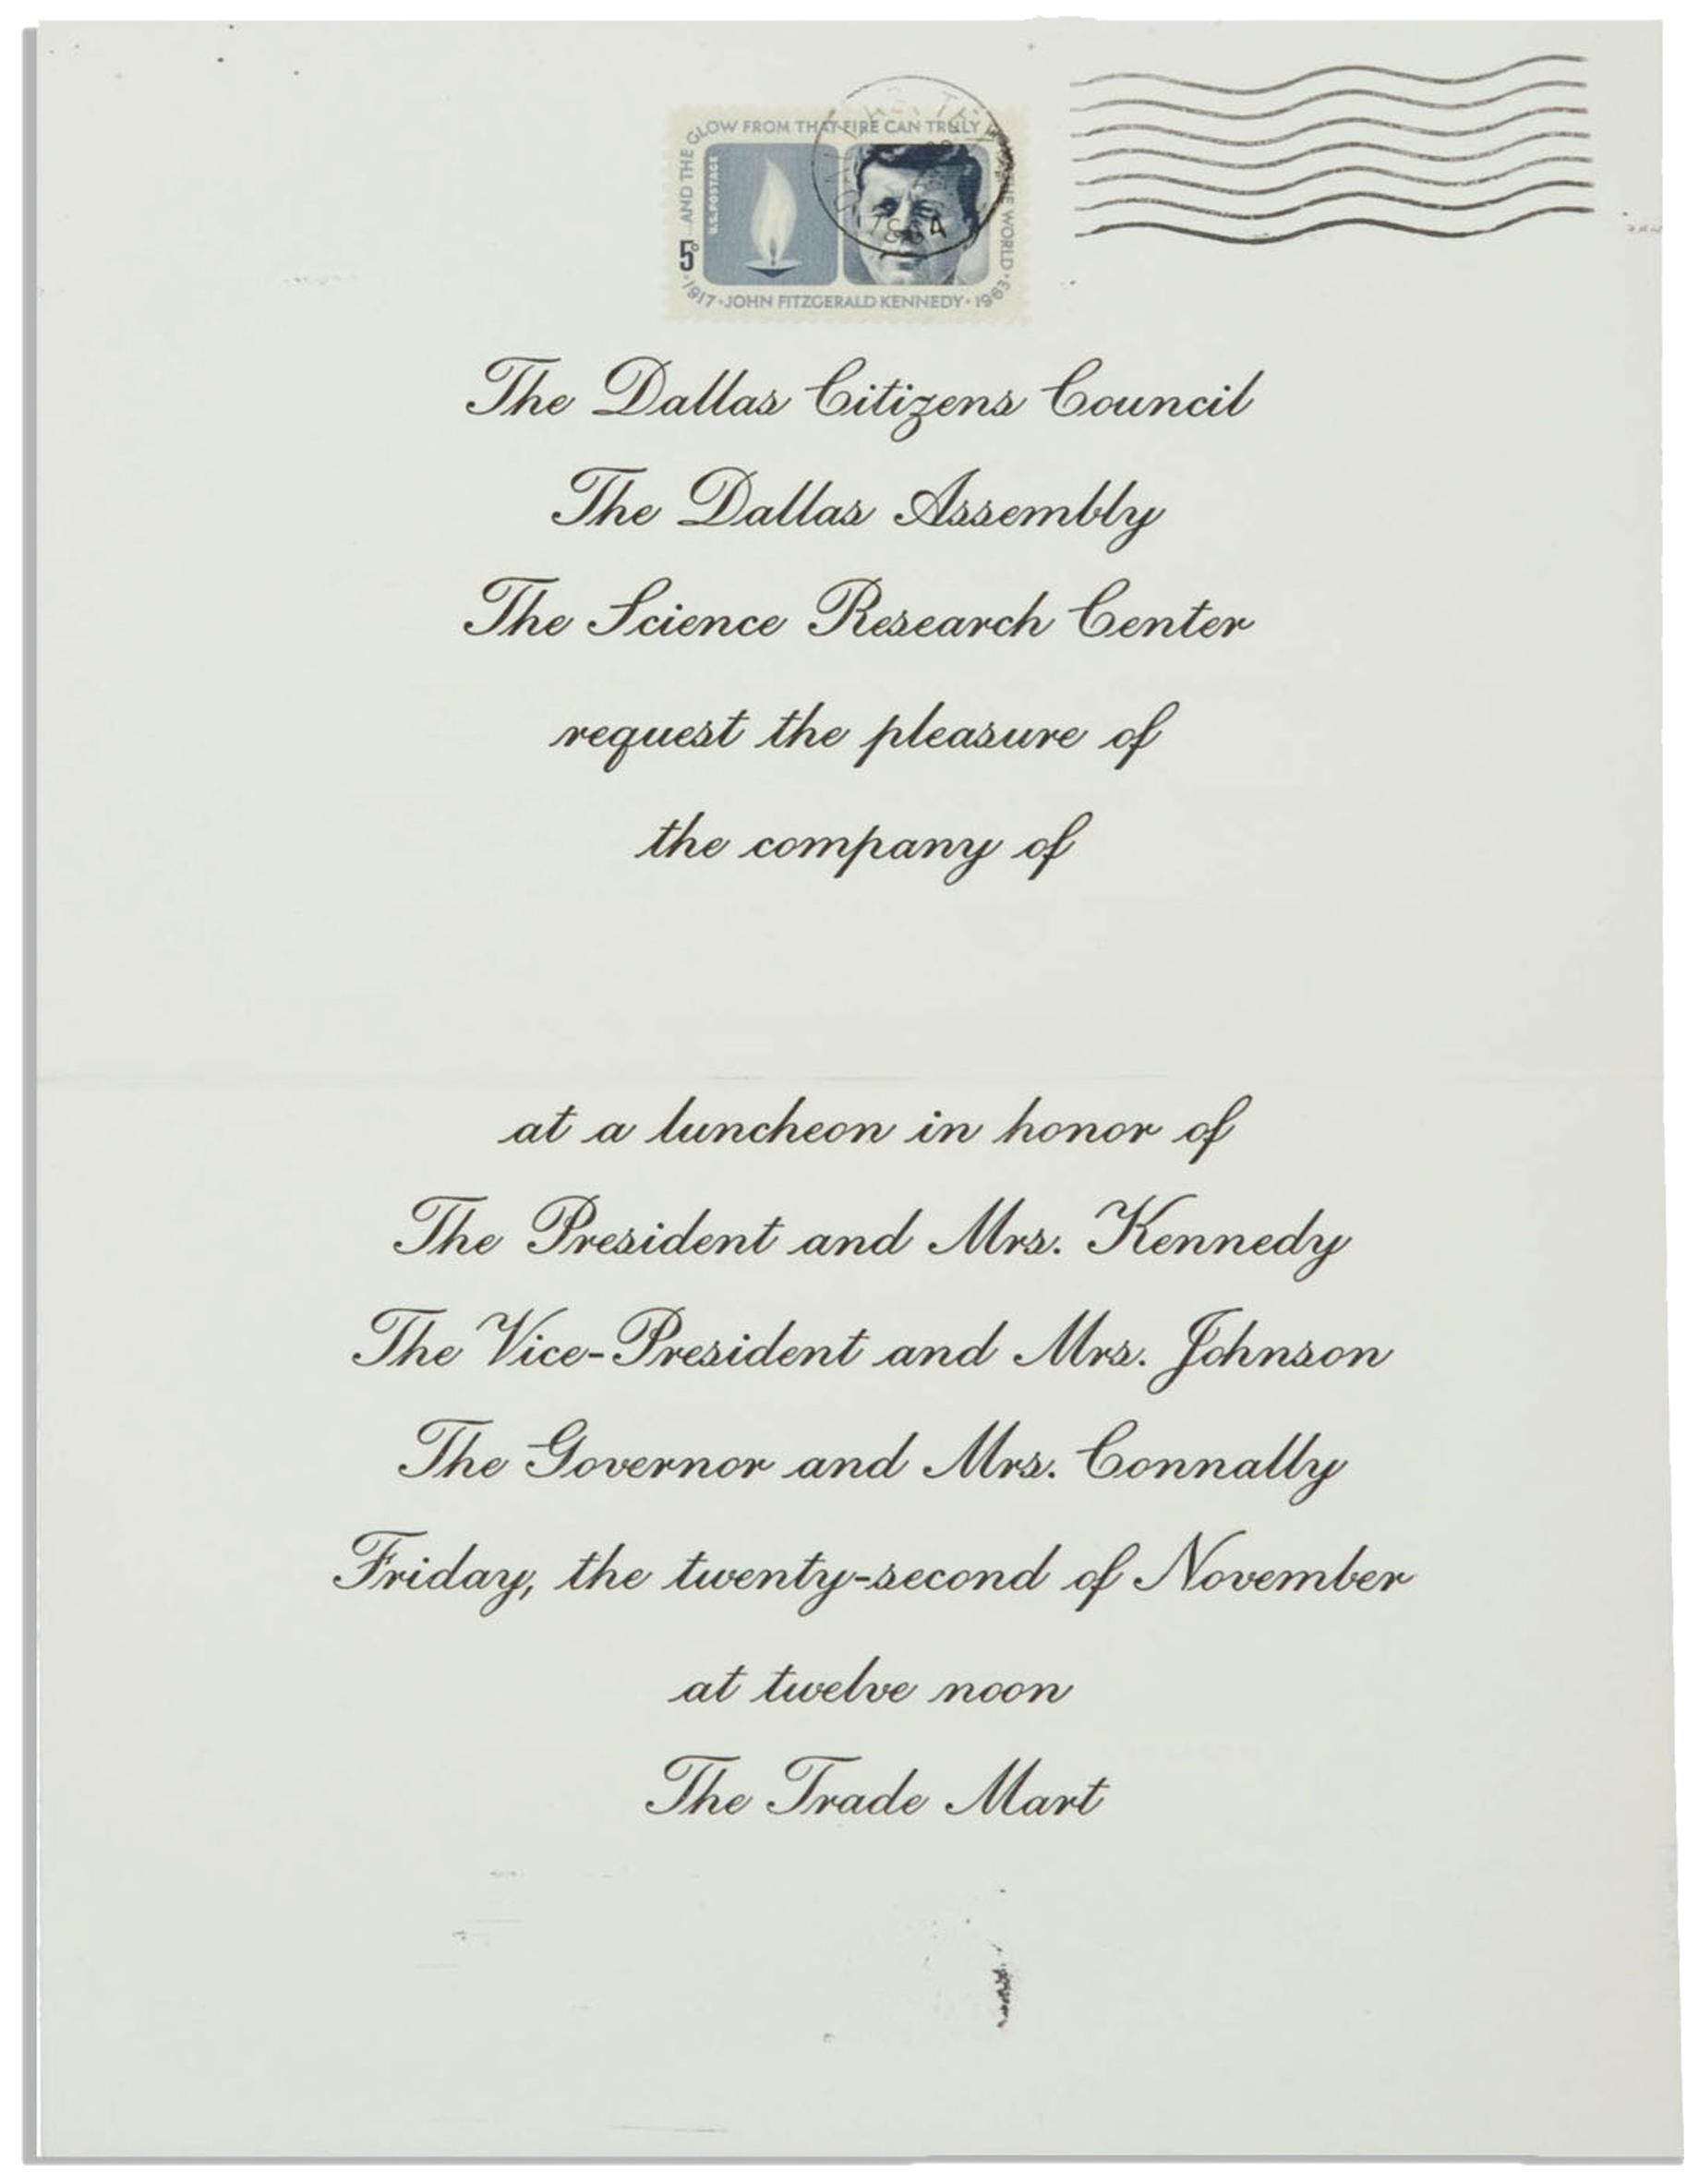 ...AND THE GLOW FROM THAT FIRE CAN TRULY THE WORLD
U.S. POSTAGE
5¢
1917 · JOHN FITZGERALD KENNEDY · 1963
1964
The Dallas Citizens Council
The Dallas Assembly
The Science Research Center
request the pleasure of
the company of
at a luncheon in honor of
The President and Mrs. Kennedy
The Vice-President and Mrs. Johnson
The Governor and Mrs. Connally
Friday, the twenty-second of November
at twelve noon
The Trade Mart